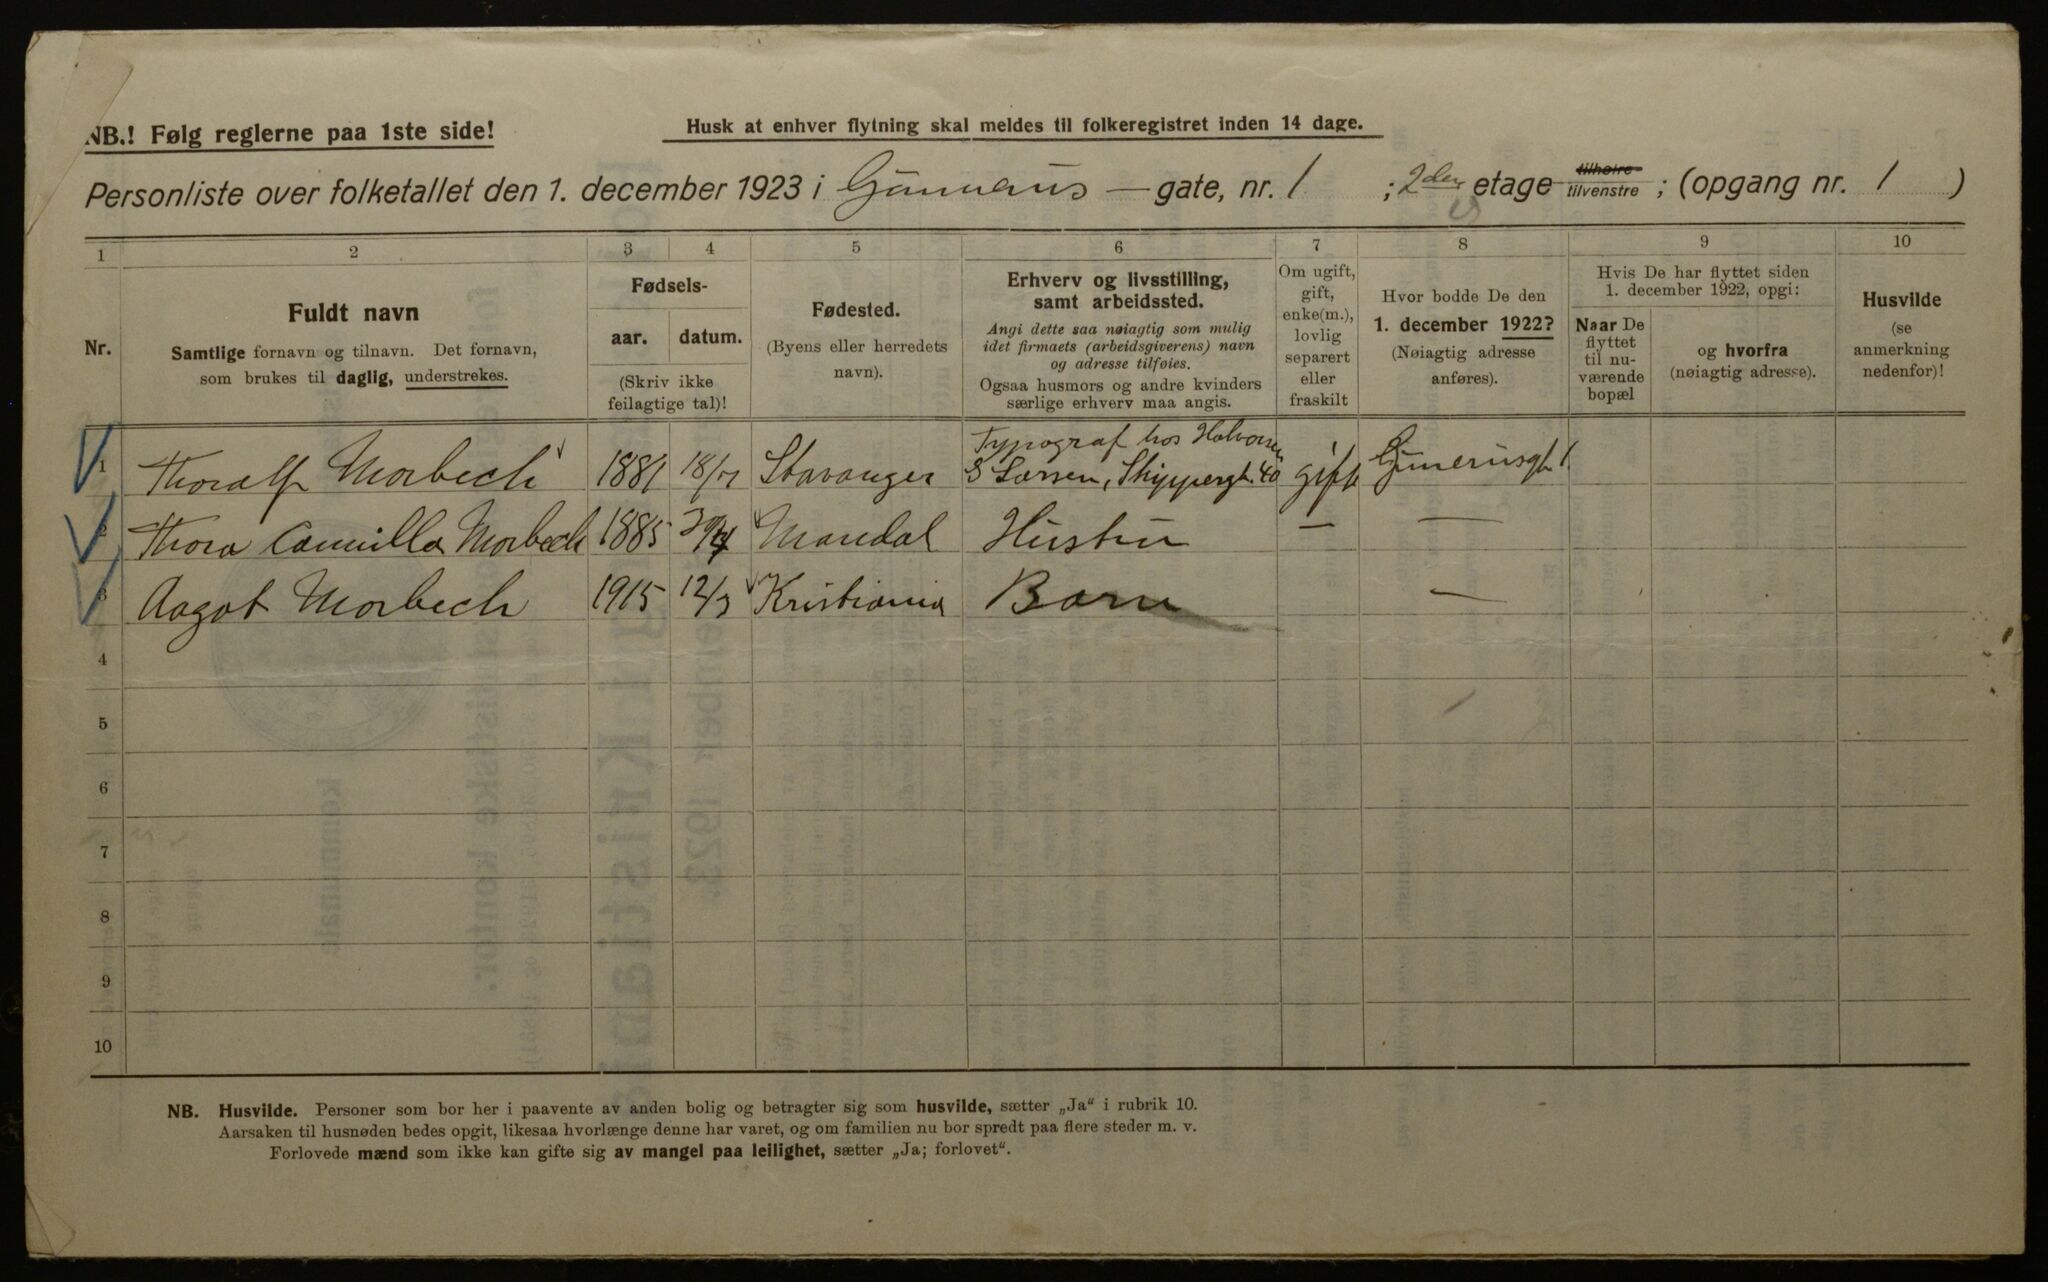 NB.! Følg reglerne paa 1ste side!
Husk at enhver flytning skal meldes til folkeregistret inden 14 dage.
Personliste over folketallet den 1. december 1923 i Gunnerus — gate, nr. 1 ; 2den etage tilhøire tilvenstre ; (opgang nr. 1 )
1 2 3 4 5 6 7 8 9 10
Nr.
Fuldt navn
Samtlige fornavn og tilnavn. Det fornavn,
som brukes til daglig, understrekes.
Fødsels-
aar. datum.
(Skriv ikke
feilagtige tal)!
Fødested.
(Byens eller herredets
navn).
Erhverv og livsstilling,
samt arbeidssted.
Angi dette saa nøiagtig som mulig
idet firmaets (arbeidsgiverens) navn
og adresse tilføies.
Ogsaa husmors og andre kvinders
særlige erhverv maa angis.
Om ugift,
gift,
enke(m.),
lovlig
separert
eller
fraskilt
Hvor bodde De den
1. december 1922?
(Nøiagtig adresse
anføres).
Hvis De har flyttet siden
1. december 1922, opgi:
Naar De
flyttet
til nu-
værende
bopæl
og hvorfra
(nøiagtig adresse).
Husvilde
(se
anmerkning
nedenfor)!
1 Thoralf Morbech 1881 Stavanger Typograf hos Halvorsen
& Larsen, Skippergt. 40 gift Gunerusgt 1.
2 Thora Camilla Morbech 1885 Mandal Hustru — —
3 Aagot Morbech 1915 12/3 Kristiania Barn —
4
5
6
7
8
9
10
NB. Husvilde. Personer som bor her i paavente av anden bolig og betragter sig som husvilde, sætter „Ja“ i rubrik 10.
Aarsaken til husnøden bedes opgit, likesaa hvorlænge denne har varet, og om familien nu bor spredt paa flere steder m. v.
Forlovede mænd som ikke kan gifte sig av mangel paa leilighet, sætter „Ja; forlovet“.